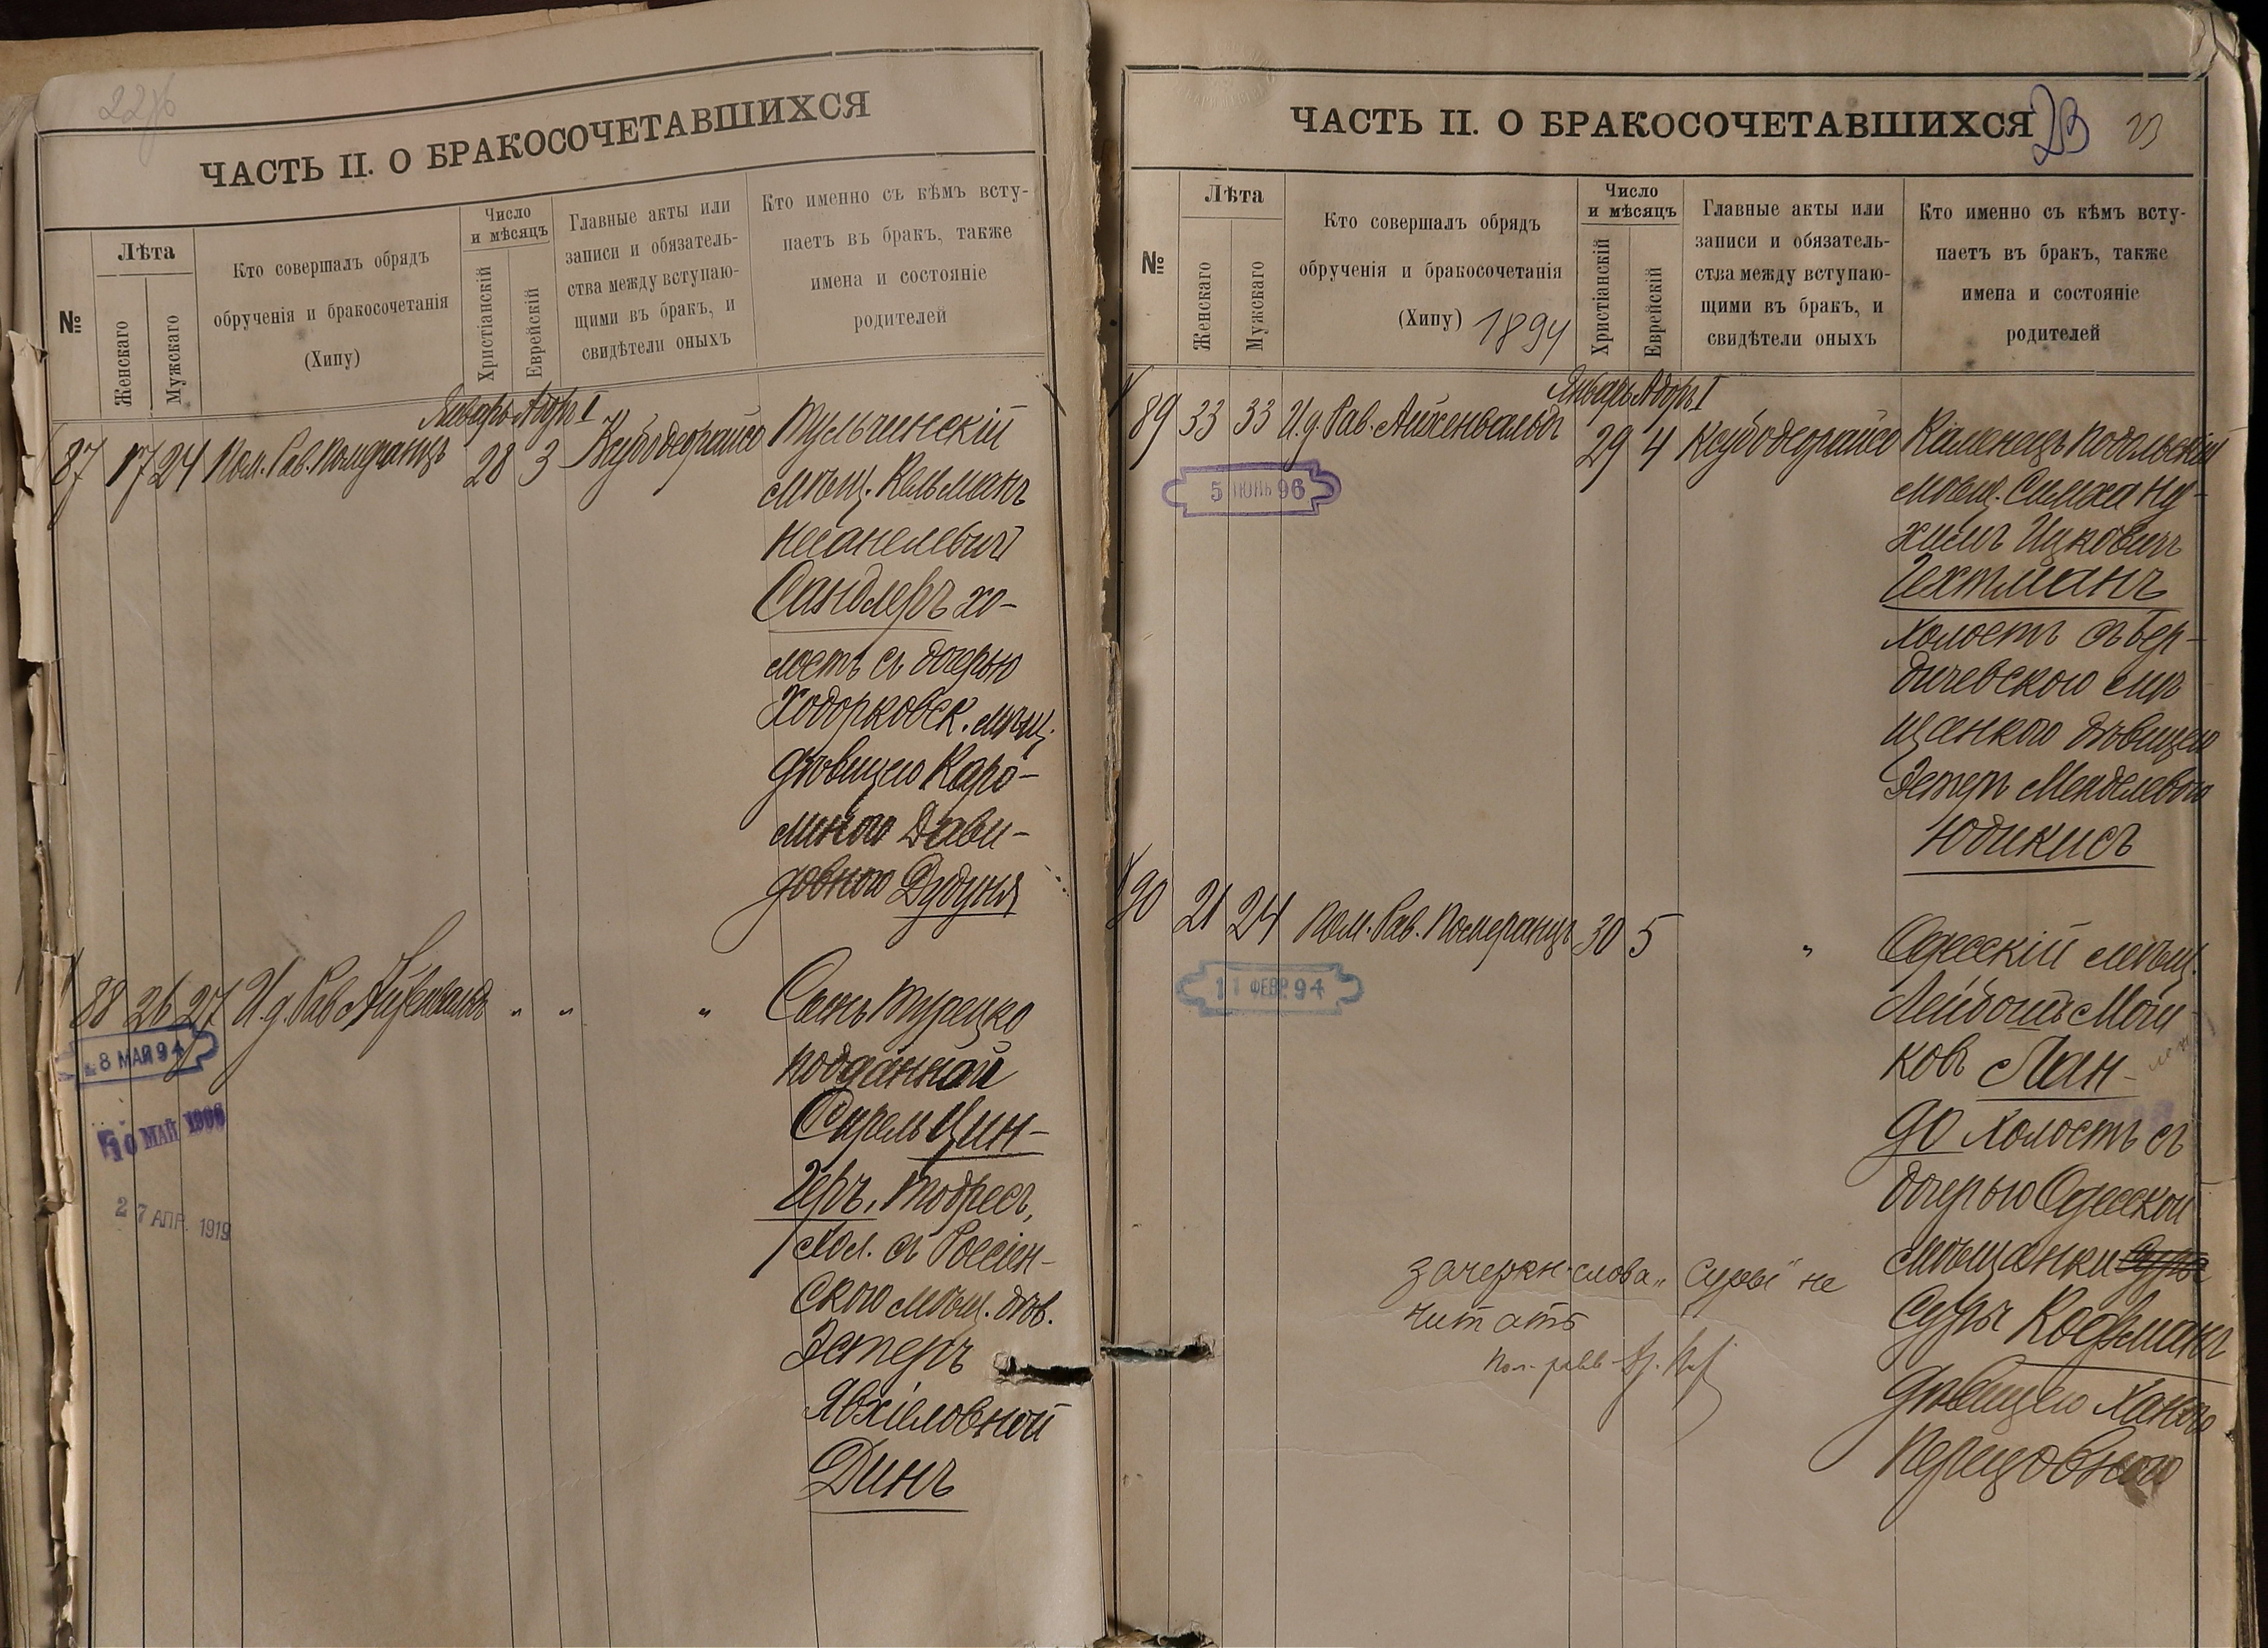 22об
ЧАСТЬ II. О БРАКОСОЧЕТАВШИХСЯ
№
Лѣта
Женскаго
Мужскаго
Кто совершалъ обрядъ
обрученія и бракосочетанія
(Хипу)
Число
и мѣсяцъ
Христіанскій
Еврейскій
Главные акты или
записи и обязатель-
ства между вступаю-
щими въ бракъ, и
свидѣтели оныхъ
Кто именно съ кѣмъ всту-
паетъ въ бракъ, также
имена и состояніе
родителей
Январь Адоръ I
87 17 24 Пом. Рав. Померанцъ 28 3 Ксубо деорайсо Тульчинскій
мѣщ. Кельманъ
Несанелевичъ
Сандлеръ хо-
лостъ съ дочерью
Ходорковск. мѣщ.
дѣвицею Каро-
линою Дави-
довною Дудуня
88 26 27 И. д. Рав Айхенвальдъ " " " Сынъ турецко
подданной
Сирель Цин-
геръ, Тодресъ,
хол. съ Россіен-
скою мѣщ. дѣв.
Эстеръ
Явхіеловной
Динъ
8 МАЙ 94
10 МАЙ 1906
27 АПР. 1919
ЧАСТЬ II. О БРАКОСОЧЕТАВШИХСЯ
23
23
№
Лѣта
Женскаго
Мужскаго
Кто совершалъ обрядъ
обрученія и бракосочетанія
(Хипу) 1894
Число
и мѣсяцъ
Христіанскій
Еврейскій
Главные акты или
записи и обязатель-
ства между вступаю-
щими въ бракъ, и
свидѣтели оныхъ
Кто именно съ кѣмъ всту-
паетъ въ бракъ, также
имена и состояніе
родителей
Январь Адоръ I
89 33 33 И. д. Рав. Айхенвальдъ 29 4 Ксубо деорайсо Каменецъ Подольскій
мѣщ. Симха Ну-
химъ Ицковичъ
Гехтманъ
холостъ съ Бер-
дичевскою мѣ
щанкою дѣвицею
Эстеръ Менделевою
Юдикисъ
5 ІЮНЬ 96
90 21 24 Пом. Рав. Померанцъ 30 5 " Одесскій мѣщ.
Лейбошъ Мош
ковъ Лан-
до холостъ съ
дочерью Одесской
мѣщанки Суры
Суры Кофманъ
дѣвицею Ханою
Перецовною
11 ФЕВР. 94
зачеркн. слова „Суры" не
читать